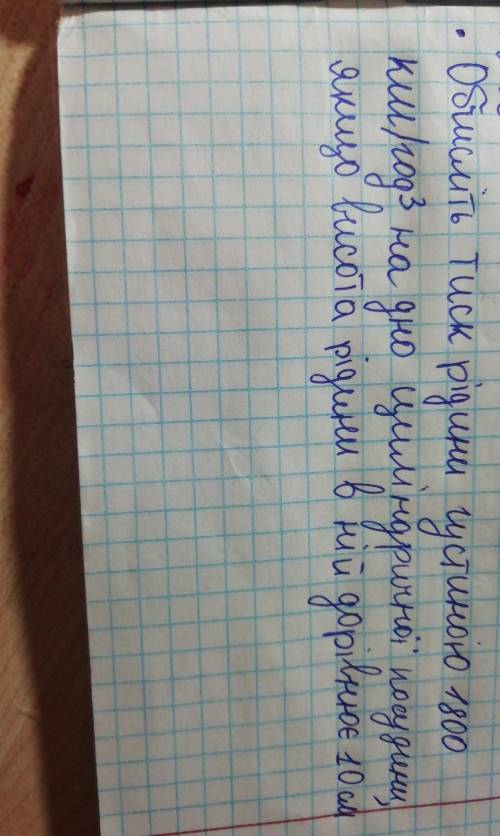 • Обчисліть тиск рідини густиною 1800
км/год³ на дно циліндричної посудини,
якщо висота рідини в ній дорівнює 10 см